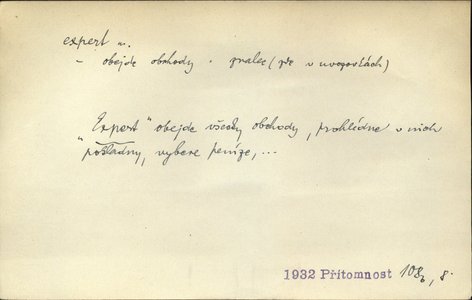 expert m.
– obejde obchody . znalec (vše v uvozovkách)
„Expert" obejde všecky obchody, prohlédne v nich
pokladny, vybere peníze, ...
1932 Přítomnost 108, 8.